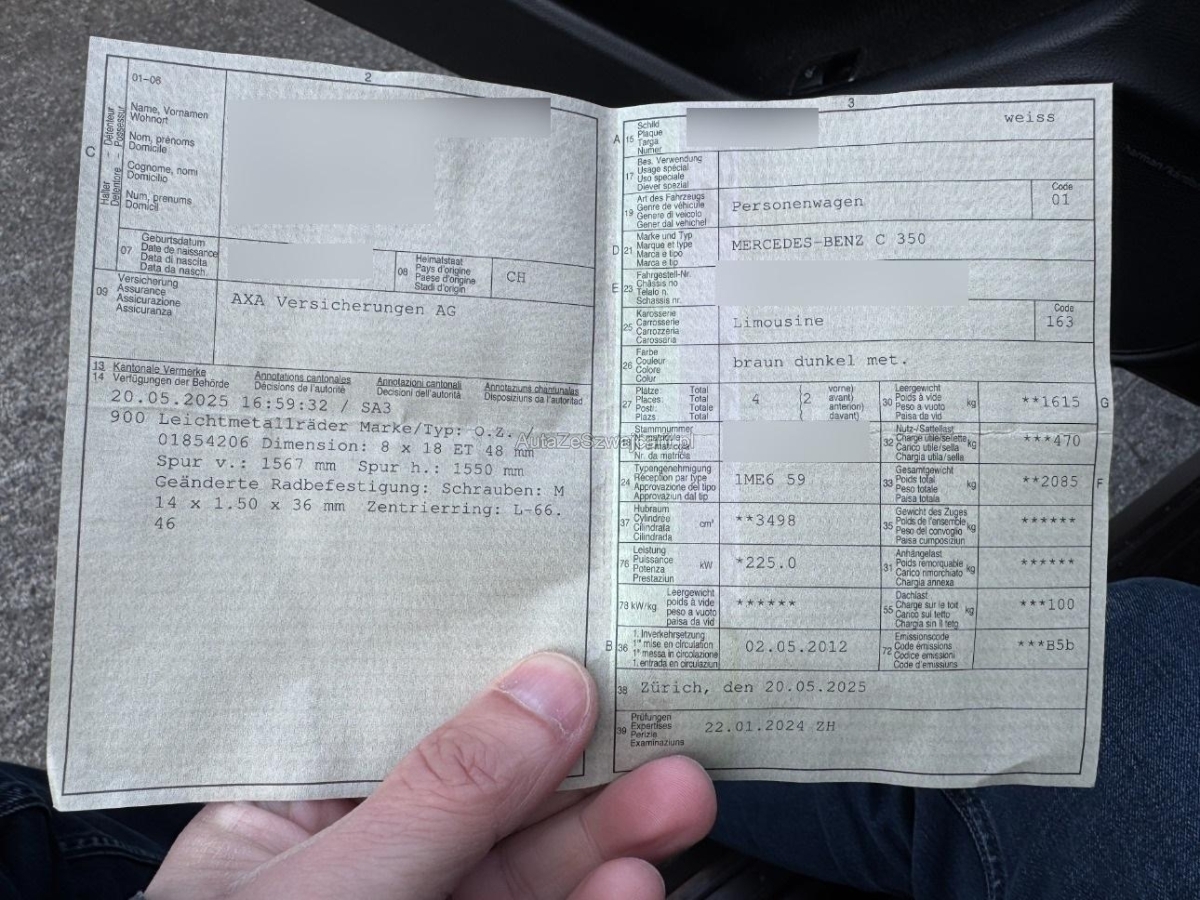 2
01-06
Name, Vornamen
Wohnort
Nom, prénoms
Domicile
Cognome, nomi
Domicilio
Num, prenums
Domicil
C
Halter - Détenteur
Detentore - Possessur
07
Geburtsdatum
Date de naissance
Data di nascita
Data da nasch.
08
Heimatstaat
Pays d'origine
Paese d'origine
Stadi d'origin
CH
09
Versicherung
Assurance
Assicurazione
Assicuranza
AXA Versicherungen AG
13 Kantonale Vermerke
14 Verfügungen der Behörde
Annotations cantonales
Décisions de l'autorité
Annotazioni cantonali
Decisioni dell'autorità
Annotaziuns chantunalas
Disposiziuns da l'autoritad
20.05.2025 16:59:32 / SA3
900 Leichtmetallräder Marke/Typ: O.Z. /
01854206 Dimension: 8 x 18 ET 48 mm
Spur v.: 1567 mm Spur h.: 1550 mm
Geänderte Radbefestigung: Schrauben: M
14 x 1.50 x 36 mm Zentrierring: L-66.
46
AutaZeSzwajcarii.pl
3
A 15
Schild
Plaque
Targa
Numer
weiss
17
Bes. Verwendung
Usage spécial
Uso speciale
Diever spezial
19
Art des Fahrzeugs
Genre de véhicule
Genere di veicolo
Gener dal vehichel
Personenwagen
Code
01
D 21
Marke und Typ
Marque et type
Marca e tipo
Marca e tip
MERCEDES-BENZ C 350
E 23
Fahrgestell-Nr.
Châssis no
Telaio n.
Schassis nr.
25
Karosserie
Carrosserie
Carrozzeria
Carossaria
Limousine
Code
163
26
Farbe
Couleur
Colore
Colur
braun dunkel met.
27
Plätze Total
Places: Total
Posti: Totale
Plazs Total
4
(2
vorne)
avant)
anteriori)
davant)
30
Leergewicht
Poids à vide
Peso a vuoto
Paisa da vid
kg
**1615
G
Stammnummer
No matricule
No matricola
Nr. da matricla
32
Nutz-/Sattellast
Charge utile/sellette
Carico utile/sella
Chargia utila/sella
kg
***470
24
Typengenehmigung
Réception par type
Approvazione del tipo
Approvaziun dal tip
1ME6 59
33
Gesamtgewicht
Poids total
Peso totale
Paisa totala
kg
**2085
F
37
Hubraum
Cylindrée
Cilindrata
Cilindrada
cm³
**3498
35
Gewicht des Zuges
Poids de l'ensemble
Peso del convoglio
Paisa cumposiziun
kg
******
76
Leistung
Puissance
Potenza
Prestaziun
kW
*225.0
31
Anhängelast
Poids remorquable
Carico rimorchiato
Chargia annexa
kg
******
78 kW/kg
Leergewicht
poids à vide
peso a vuoto
paisa da vid
******
55
Dachlast
Charge sur le toit
Carico sul tetto
Chargia sin il tetg
kg
***100
B 36
1. Inverkehrsetzung
1re mise en circulation
1a messa in circolazione
1. entrada en circulaziun
02.05.2012
72
Emissionscode
Code émissions
Codice emissioni
Code d'emissiuns
***B5b
38 Zürich, den 20.05.2025
39
Prüfungen
Expertises
Perizie
Examinaziuns
22.01.2024 ZH